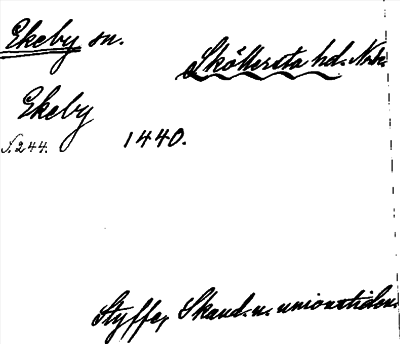 Ekeby sn.
Sköllersta hd. Nrke.
Ekeby
S. 244.
1440.
Styffe, Skand. u. unionstiden.